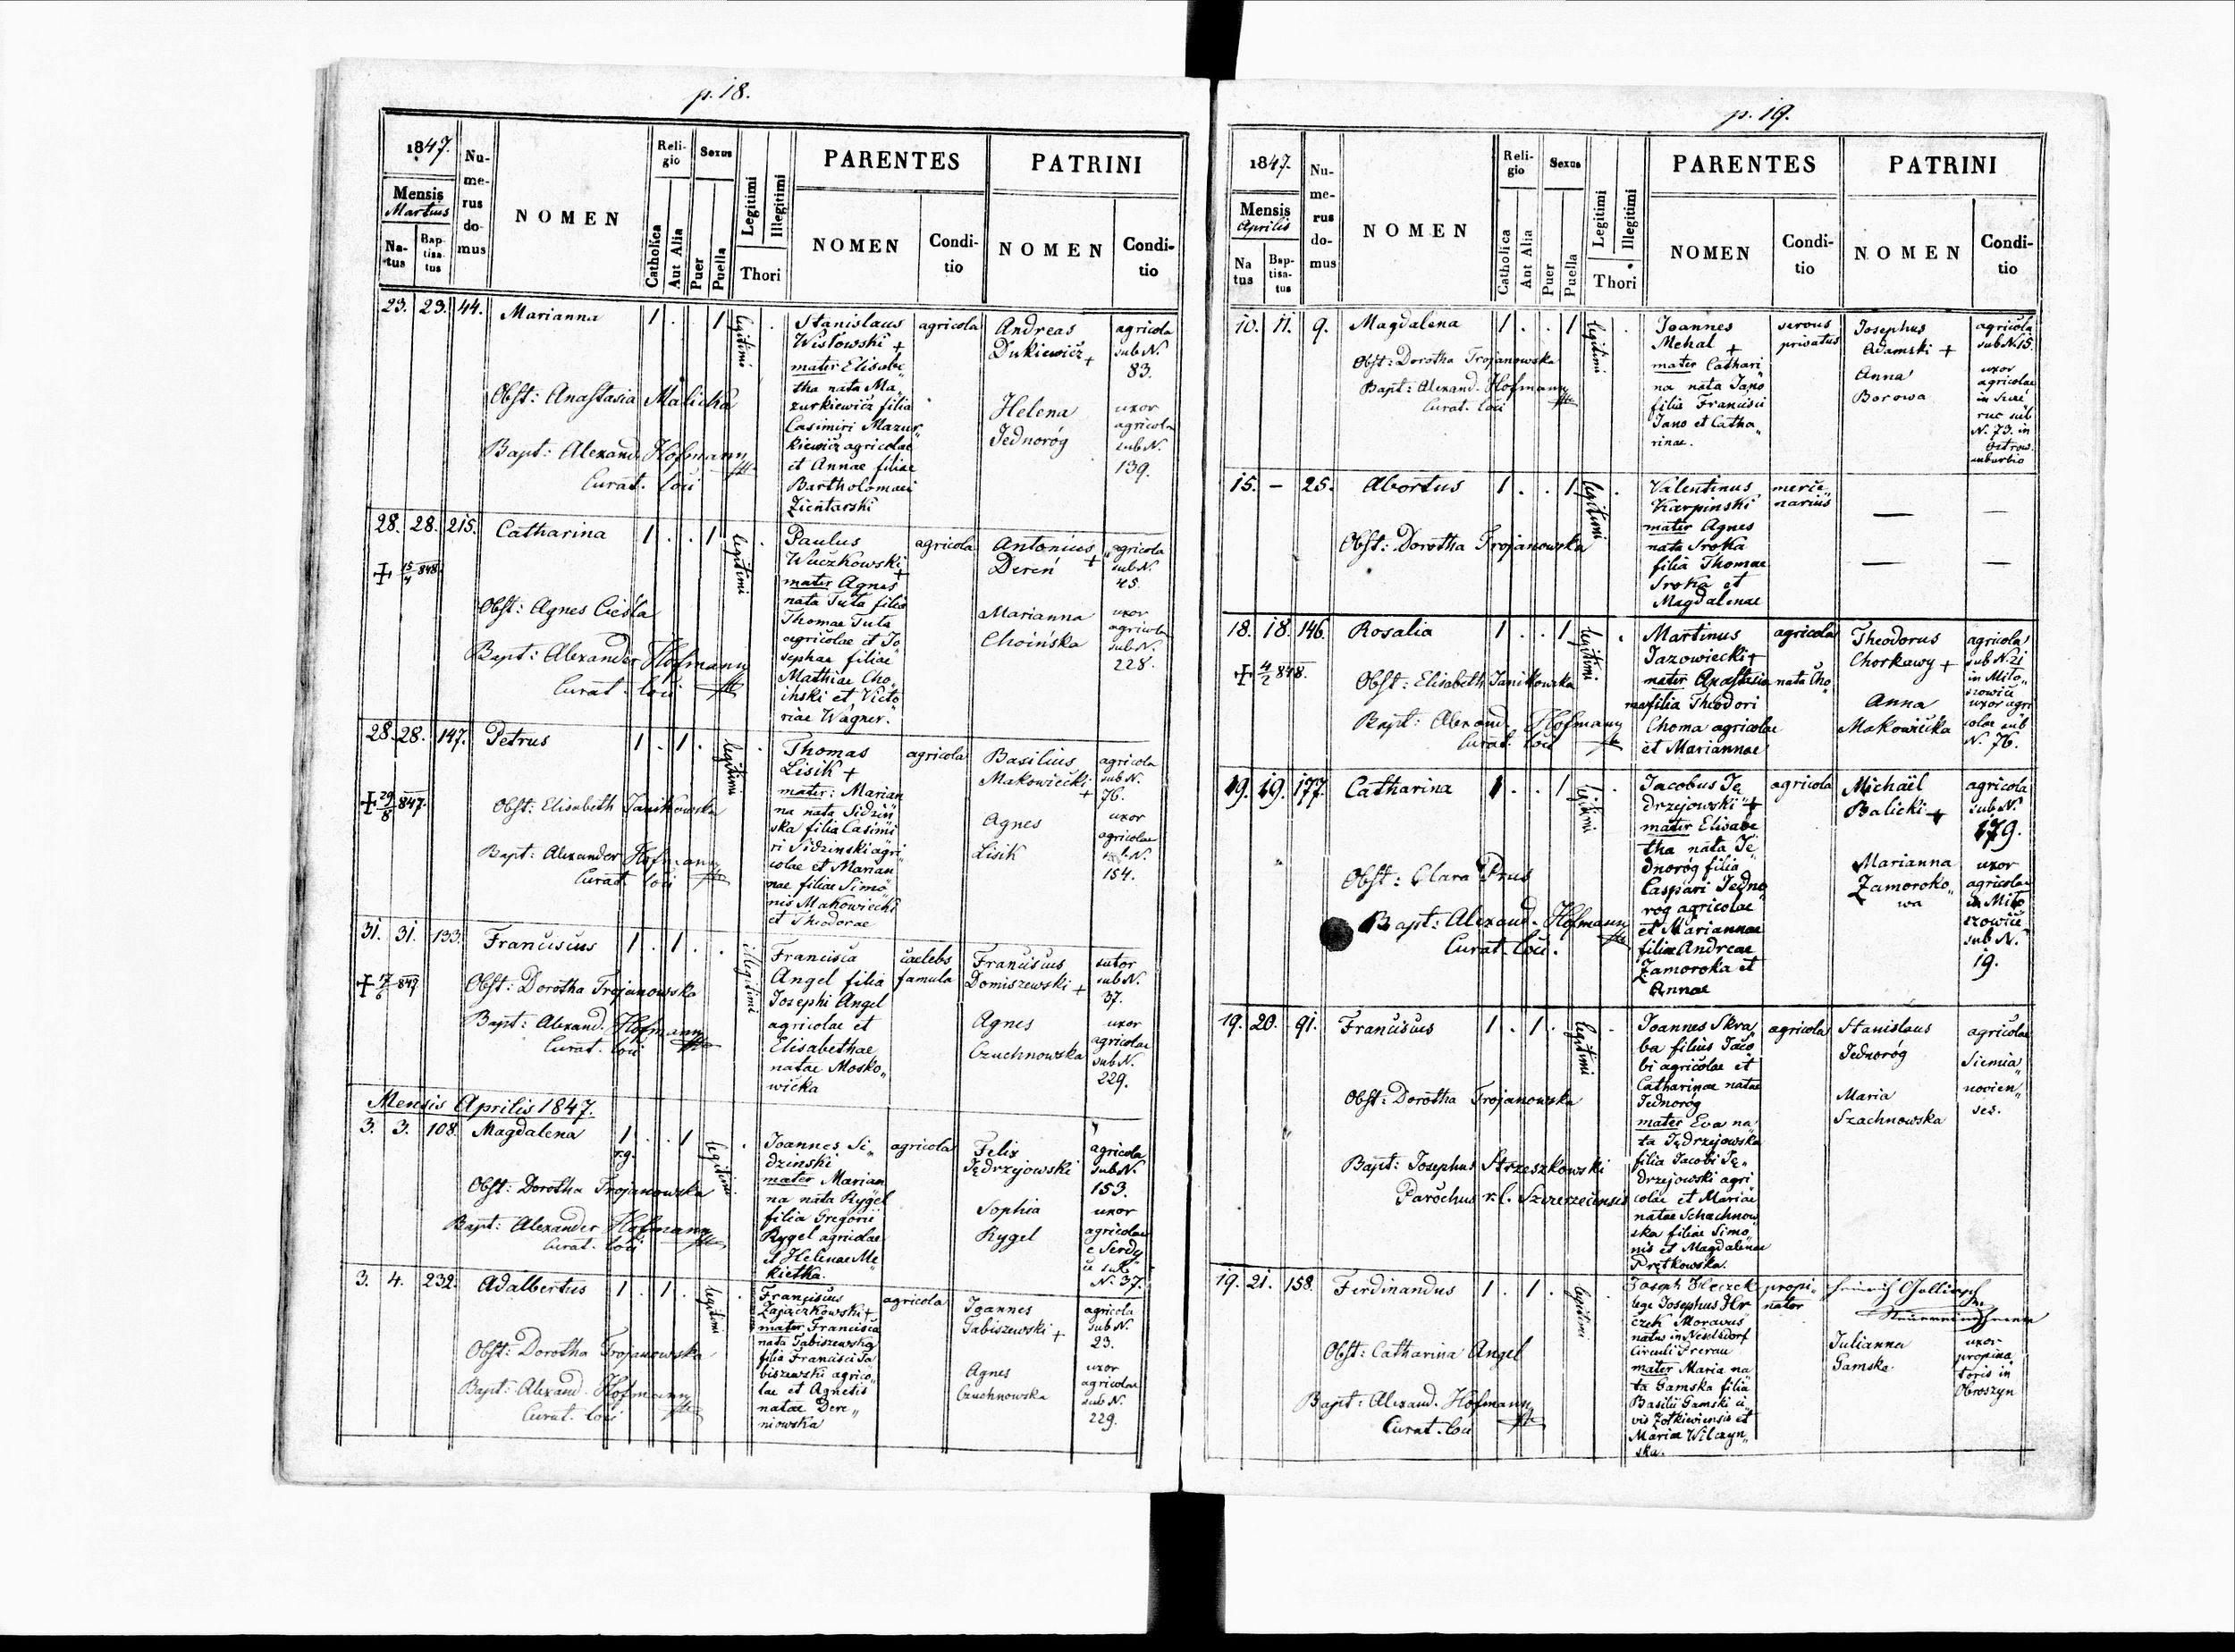 p. 18.
1847.
Mensis
Martius
Na-
tus
Bap-
tisa-
tus
Nu-
me-
rus
do-
mus
NOMEN
Reli-
gio
Catholica
Aut Alia
Sexus
Puer
Puella
Legitimi
Illegitimi
Thori
PARENTES
NOMEN
Condi-
tio
PATRINI
NOMEN
Condi-
tio
23. 23. 44. Marianna 1 . . 1 legitimi .
Obst: Anastasia Malicka
Bapt: Alexand. Hofmann
Curat. loci
Stanislaus
Wisłowski +
mater Elisabe„
tha nata Ma„
zurkiewicz filia
Casimiri Mazur„
kiewicz agricolae
et Annae filiae
Bartholomaei
Zientarski
agricola
Andreas
Dukiewicz +
Helena
Jednoróg
agricola
sub N.
83.
uxor
agricola
sub N.
139.
28. 28. 215. Catharina 1 . . 1 legitimi .
+ 15/4 848.
Obst: Agnes Cieśla
Bapt: Alexander Hofmann
Curat. loci
Paulus
Wuczkowski +
mater Agnes
nata Tuta filia
Thomae Tuta
agricolae et Jo
sephae filiae
Mathiae Cho„
inski et Victo„
riae Wagner.
agricola
Antonius +
Dereń
Marianna
Choińska
agricola
sub N.
45.
uxor
agricola
sub N.
228.
28. 28. 147. Petrus 1 . 1 . legitimi .
+ 29/8 847.
Obst: Elisabeth Janikowska
Bapt: Alexander Hofmann
Curat. loci
Thomas
Lisik +
mater: Marian
na nata Sidzin
ska filia Casimi
ri Sidzinski agri„
colae et Marian
nae filiae Simo„
nis Makowiecki
et Theodorae
agricola
Basilius
Makowiecki +
Agnes
Lisik
agricola
sub N.
76.
uxor
agricolae
sub N.
154.
31. 31. 133. Franciscus 1 . 1 . . illegitimi
+ 17/6 849
Obst: Dorotha Trojanowska
Bapt: Alexand. Hofmann
Curat. loci
Francisca
Angel filia
Josephi Angel
agricolae et
Elisabethae
natae Mosko„
wicka
caelebs
famula
Franciscus
Domiszewski +
Agnes
Czuchnowska
sutor
sub N.
37.
uxor
agricolae
sub N.
229.
Mensis Aprilis 1847.
3. 3. 108. Magdalena 1 . . 1 legitimi .
r.g.
Obst: Dorotha Trojanowska
Bapt: Alexander Hofmann
Curat. loci
Joannes Si„
dzinski
mater Marian
na nata Rygel
filia Gregorii
Rygel agricolae
et Helenae Me
kietka.
agricola
Felix
Jędrzejowski
Sophia
Rygel
agricola
sub N.
153.
uxor
agricolae
N. 37.
3. 4. 232. Adalbertus 1 . 1 . legitimi .
Obst: Dorotha Trojanowska
Bapt: Alexand. Hofmann
Curat. loci
Franciscus
Zajączkowski +
mater Francisca
nata Tabiszewska
filia Francisci Ta
biszewski agrico„
lae et Agnetis
natae Dere„
niowska
agricola
Joannes
Tabiszewski +
Agnes
Czuchnowska
agricola
sub N.
23.
uxor
agricolae
sub N.
229.
p. 19.
1847.
Mensis
Aprilis
Na
tus
Bap-
tisa-
tus
Nu-
me-
rus
do-
mus
NOMEN
Reli-
gio
Catholica
Aut Alia
Sexus
Puer
Puella
Legitimi
Illegitimi
Thori
PARENTES
NOMEN
Condi-
tio
PATRINI
NOMEN
Condi-
tio
10. 11. 9. Magdalena 1 . . 1 legitimi .
Obst: Dorotha Trojanowska
Bapt: Alexand. Hofmann
Curat. loci
Joannes
Mehal +
mater Cathari
na nata Jano
filia Francisci
Jano et Catha„
rinae.
servus
privatus
Josephus
Adamski +
Anna
Borowa
agricola
sub N. 15.
uxor
agricolae
N. 73. in
suburbio
15. – 25. Abortus 1 . . 1 legitimi .
Obst: Dorotha Trojanowska
Valentinus
Karpinski
mater Agnes
nata Sroka
filia Thomae
Sroka et
Magdalenae
merce„
narius
— —
— —
18. 18. 146. Rosalia 1 . . 1 legitimi .
+ 4/2 848.
Obst: Elisabeth Janikowska
Bapt: Alexand. Hofmann
Curat. loci
Martinus
Jazowiecki +
mater Anastasia nata Cho„
ma filia Theodori
Choma agricolae
et Mariannae
agricola
Theodorus
Chorkawy +
Anna
Makowiecka
agricola
sub N. 21
in Miło„
szowice
uxor agri
colae sub
N. 76.
19. 19. 177. Catharina 1 . . 1 legitimi .
Obst: Clara Prus
Bapt: Alexand. Hofmann
Curat. loci.
Jacobus Ję
drzejowski +
mater Elisabe
tha nata Je„
dnoróg filia
Caspari Jedno
rog agricolae
et Mariannae
filiae Andreae
Zamoroka et
Annae
agricola
Michaël
Balicki +
Marianna
Zamoroko„
wa
agricola
sub N.
179.
uxor
agricolae
in Miło
szowice
sub N.
19.
19. 20. 91. Franciscus 1 . 1 . legitimi .
Obst: Dorotha Trojanowska
Bapt: Josephus Strzeszkowski
Parochus r.l. Szczerzecensis
Joannes Skra„
ba filius Jaco
bi agricolae et
Catharinae natae
Jednoróg
mater Eva na„
ta Jędrzejowska
filia Jacobi Ję„
drzejowski agri
colae et Mariae
natae Schachnow
ska filiae Simo„
nis et Magdalenae
Prętkowska.
agricola
Stanislaus
Jednoróg
Maria
Szachnowska
agricolae
Siemia„
novien„
ses.
19. 21. 158. Ferdinandus 1 . 1 . legitimi .
Obst: Catharina Angel
Bapt: Alexand. Hofmann
Curat. loci
lege Josephus Hr
czek Moravus
natus in Neselsdorf
Circuli Prerau
mater Maria na„
ta Gamska filia
Basilii Gamski ci
vis Żołkiewiensis et
Mariae Wilczyn„
ska.
propi„
nator
Julianna
Gamska
uxor
propina
toris in
Obroszyn